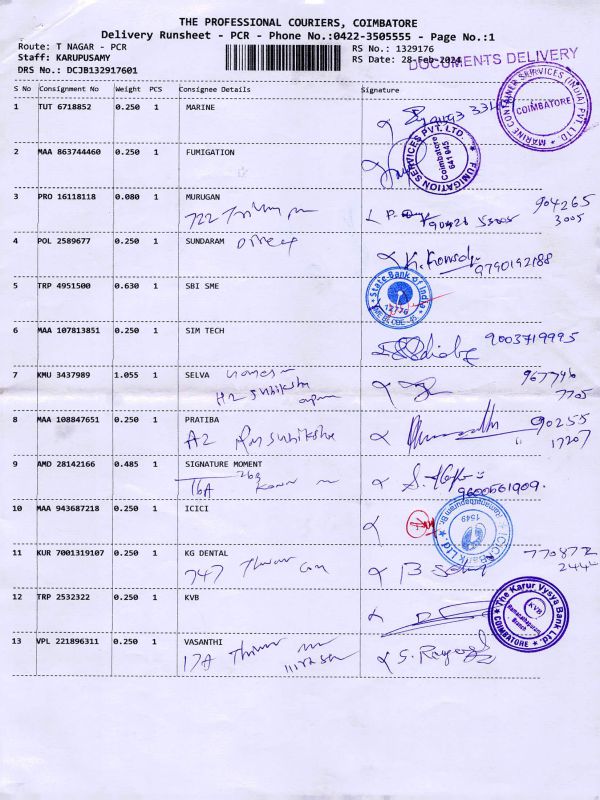 THE PROFESSIONAL COURIERS, COIMBATORE
Delivery Runsheet - PCR - Phone No.:0422-3505555 - Page No.:1
Route: T NAGAR - PCR RS No.: 1329176
Staff: KARUPUSAMY RS Date: 28-Feb-2024
DRS No.: DCJB132917601
DOCUMENTS DELIVERY
S No Consignment No Weight PCS Consignee Details Signature
1 TUT 6718852 0.250 1 MARINE
MARINE CONTAINER SERVICES (INDIA) PVT. LTD. COIMBATORE
2 MAA 863744460 0.250 1 FUMIGATION
FUMIGATION SERVICES PVT. LTD Coimbatore 641 045
3 PRO 16118118 0.080 1 MURUGAN
722
904265
3005
4 POL 2589677 0.250 1 SUNDARAM
9790192188
5 TRP 4951500 0.630 1 SBI SME
State Bank of India
6 MAA 107813851 0.250 1 SIM TECH
9003719995
7 KMU 3437989 1.055 1 SELVA
H2 Subiksha
967746
7705
8 MAA 108847651 0.250 1 PRATIBA
A2 Subiksha
90255
17207
9 AMD 28142166 0.485 1 SIGNATURE MOMENT
16A
9600561909
10 MAA 943687218 0.250 1 ICICI
ICICI Bank Ltd. 1549
11 KUR 7001319107 0.250 1 KG DENTAL
747
770872
2444
12 TRP 2532322 0.250 1 KVB
The Karur Vysya Bank Ltd KVB Ramanathapuram Branch COIMBATORE
13 VPL 221896311 0.250 1 VASANTHI
17A